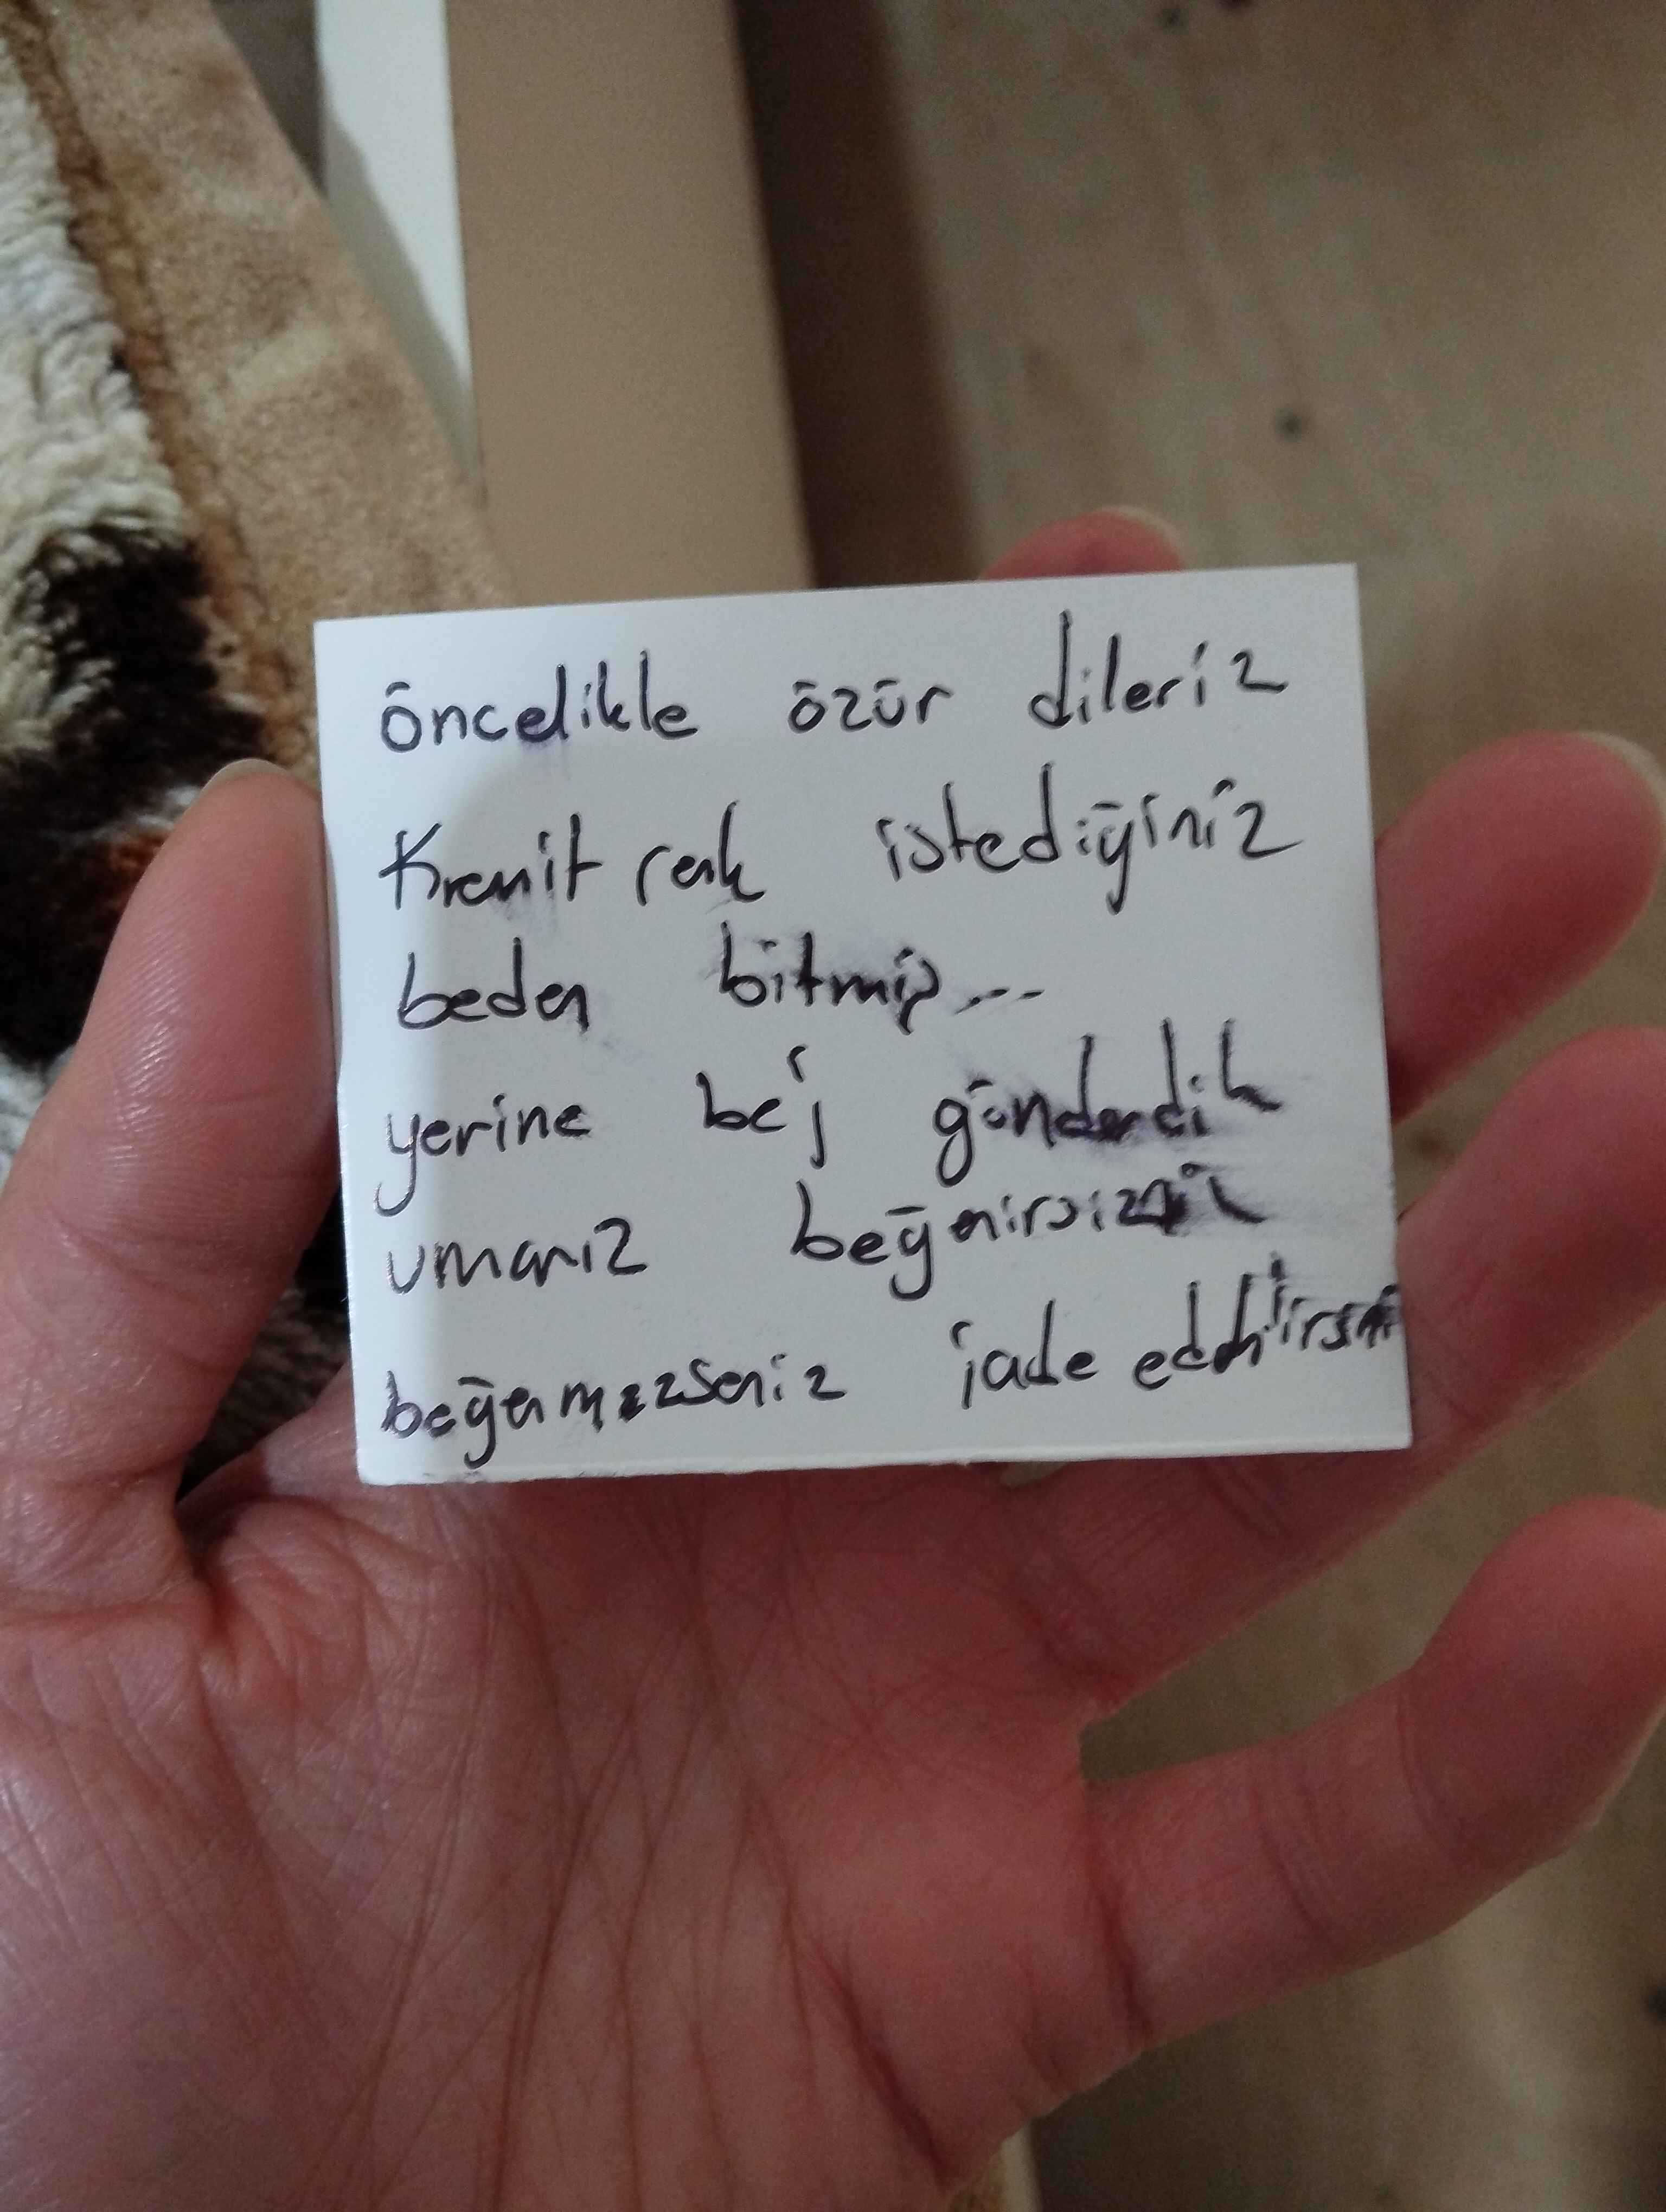 öncelikle özür dileriz
Kremit renk istediğiniz
beden bitmiş...
yerine bej gönderdik
umarız beğenirsiniz
beğenmezseniz iade edebilirsiniz